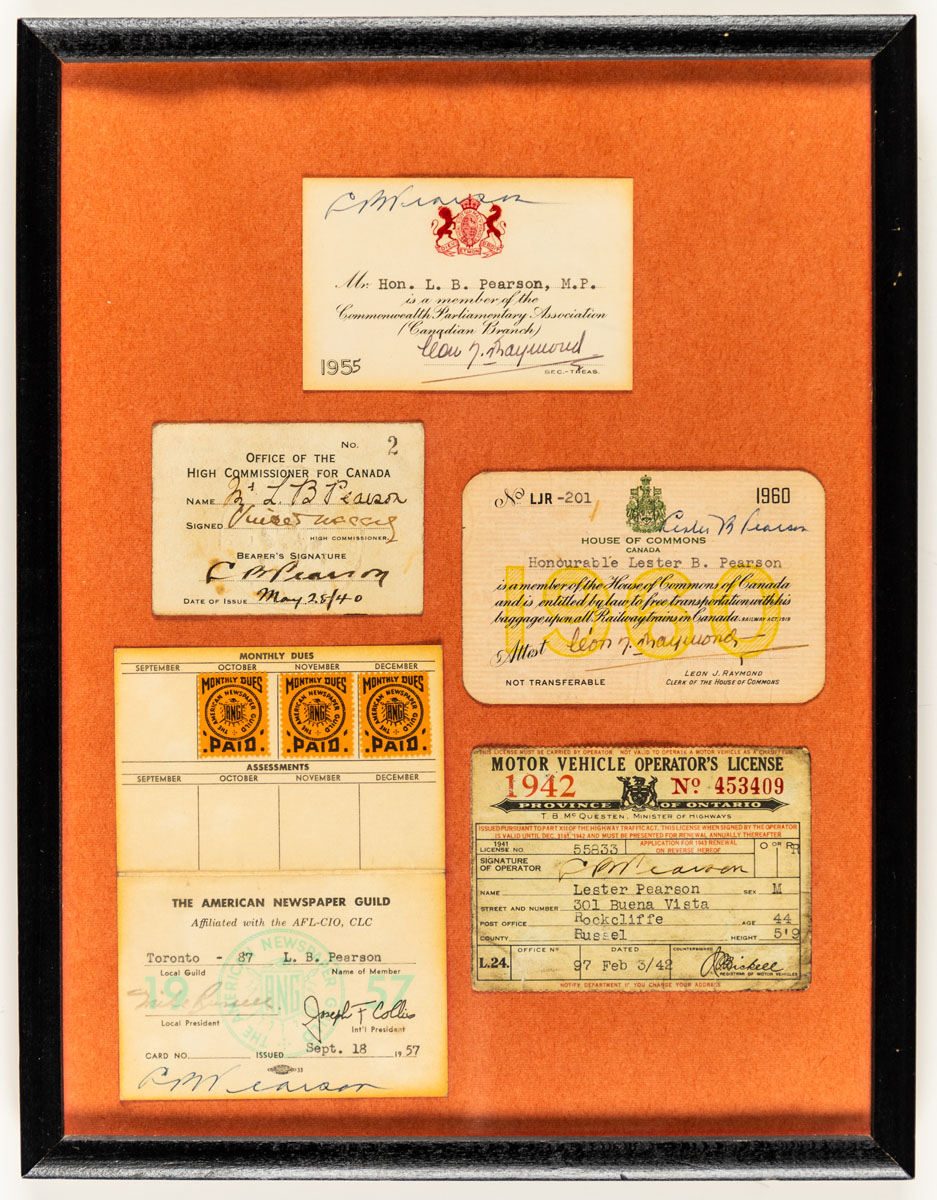 L B Pearson
DIEU ET MON DROIT
Mr. Hon. L. B. Pearson, M.P.
is a member of the
Commonwealth Parliamentary Association
(Canadian Branch)
Leon J. Raymond
1955
SEC.-TREAS.
No. 2
OFFICE OF THE
HIGH COMMISSIONER FOR CANADA
NAME Mr L B Pearson
SIGNED Vincent Massey
HIGH COMMISSIONER.
BEARER'S SIGNATURE
L B Pearson
DATE OF ISSUE May 28/40
No LJR -201
1960
Lester B Pearson
HOUSE OF COMMONS
CANADA
Honourable Lester B. Pearson
1960
is a member of the House of Commons of Canada
and is entitled by law to free transportation with his
baggage upon all Railway trains in Canada. RAILWAY ACT, 1919
Attest Léon J. Raymond
LEON J. RAYMOND
NOT TRANSFERABLE
CLERK OF THE HOUSE OF COMMONS
MONTHLY DUES
SEPTEMBER OCTOBER NOVEMBER DECEMBER
MONTHLY DUES MONTHLY DUES MONTHLY DUES
THE AMERICAN NEWSPAPER GUILD THE AMERICAN NEWSPAPER GUILD THE AMERICAN NEWSPAPER GUILD
ANG ANG ANG
PAID PAID PAID
ASSESSMENTS
SEPTEMBER OCTOBER NOVEMBER DECEMBER
THE AMERICAN NEWSPAPER GUILD
Affiliated with the AFL-CIO, CLC
THE AMERICAN NEWSPAPER GUILD
ANG
Toronto - 87 L. B. Pearson
Local Guild Name of Member
19 57
Joseph F Collis
Local President Int'l President
CARD NO. ISSUED Sept. 18 1957
33
L B Pearson
THIS LICENSE MUST BE CARRIED BY OPERATOR. NOT VALID TO OPERATE A MOTOR VEHICLE AS A CHAUFFEUR
MOTOR VEHICLE OPERATOR'S LICENSE
1942 No 453409
PROVINCE OF ONTARIO
T. B. McQUESTEN, MINISTER OF HIGHWAYS
ISSUED PURSUANT TO PART XII OF THE HIGHWAY TRAFFIC ACT, THIS LICENSE WHEN SIGNED BY THE OPERATOR
IS VALID UNTIL DEC. 31ST, 1942 AND MUST BE PRESENTED FOR RENEWAL ANNUALLY THEREAFTER
1941
LICENSE NO. 55833
APPLICATION FOR 1943 RENEWAL
ON REVERSE HEREOF
O OR R
R
SIGNATURE
OF OPERATOR L B Pearson
NAME Lester Pearson SEX M
STREET AND NUMBER 301 Buena Vista
POST OFFICE Rockcliffe AGE 44
COUNTY Russel HEIGHT 5'9
OFFICE No DATED COUNTERSIGNED
L.24. 97 Feb 3/42 J P Bickell
REGISTRAR OF MOTOR VEHICLES
NOTIFY DEPARTMENT IF YOU CHANGE YOUR ADDRESS